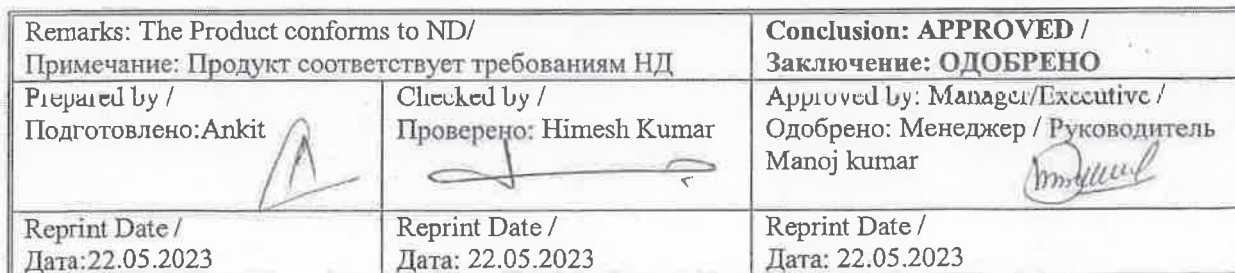 Remarks: The Product conforms to ND/
Примечание: Продукт соответствует требованиям НД
Conclusion: APPROVED /
Заключение: ОДОБРЕНО
Prepared by /
Подготовлено:Ankit
Checked by /
Проверено: Himesh Kumar
Approved by: Manager/Executive /
Одобрено: Менеджер / Руководитель
Manoj kumar
Reprint Date /
Дата:22.05.2023
Reprint Date /
Дата: 22.05.2023
Reprint Date /
Дата: 22.05.2023